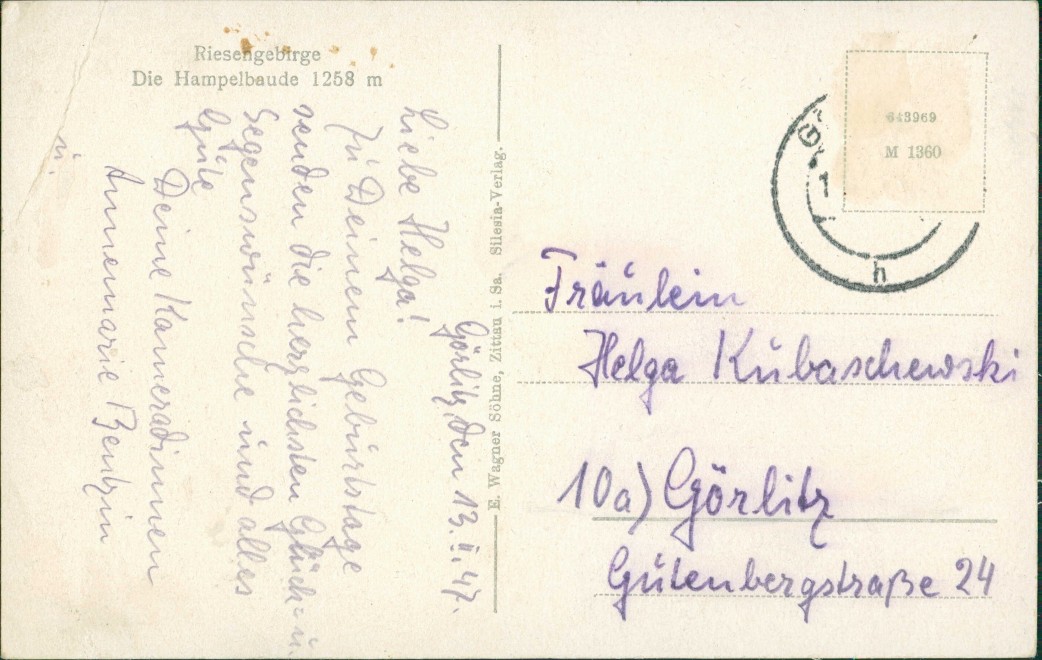 Riesengebirge
Die Hampelbaude 1258 m
Görlitz, den 13.II.47.
Liebe Helga!
Zu Deinem Geburtstage
senden die herzlichsten Glück- u.
Segenswünsche und alles
Gute
Deine Kameradinnen
Annemarie Bentzin
u.
E. Wagner Söhne, Zittau i. Sa. Silesia-Verlag.
643969
M 1360
G
1
h
Fräulein
Helga Kubaschewski
10a) Görlitz
Gutenbergstraße 24